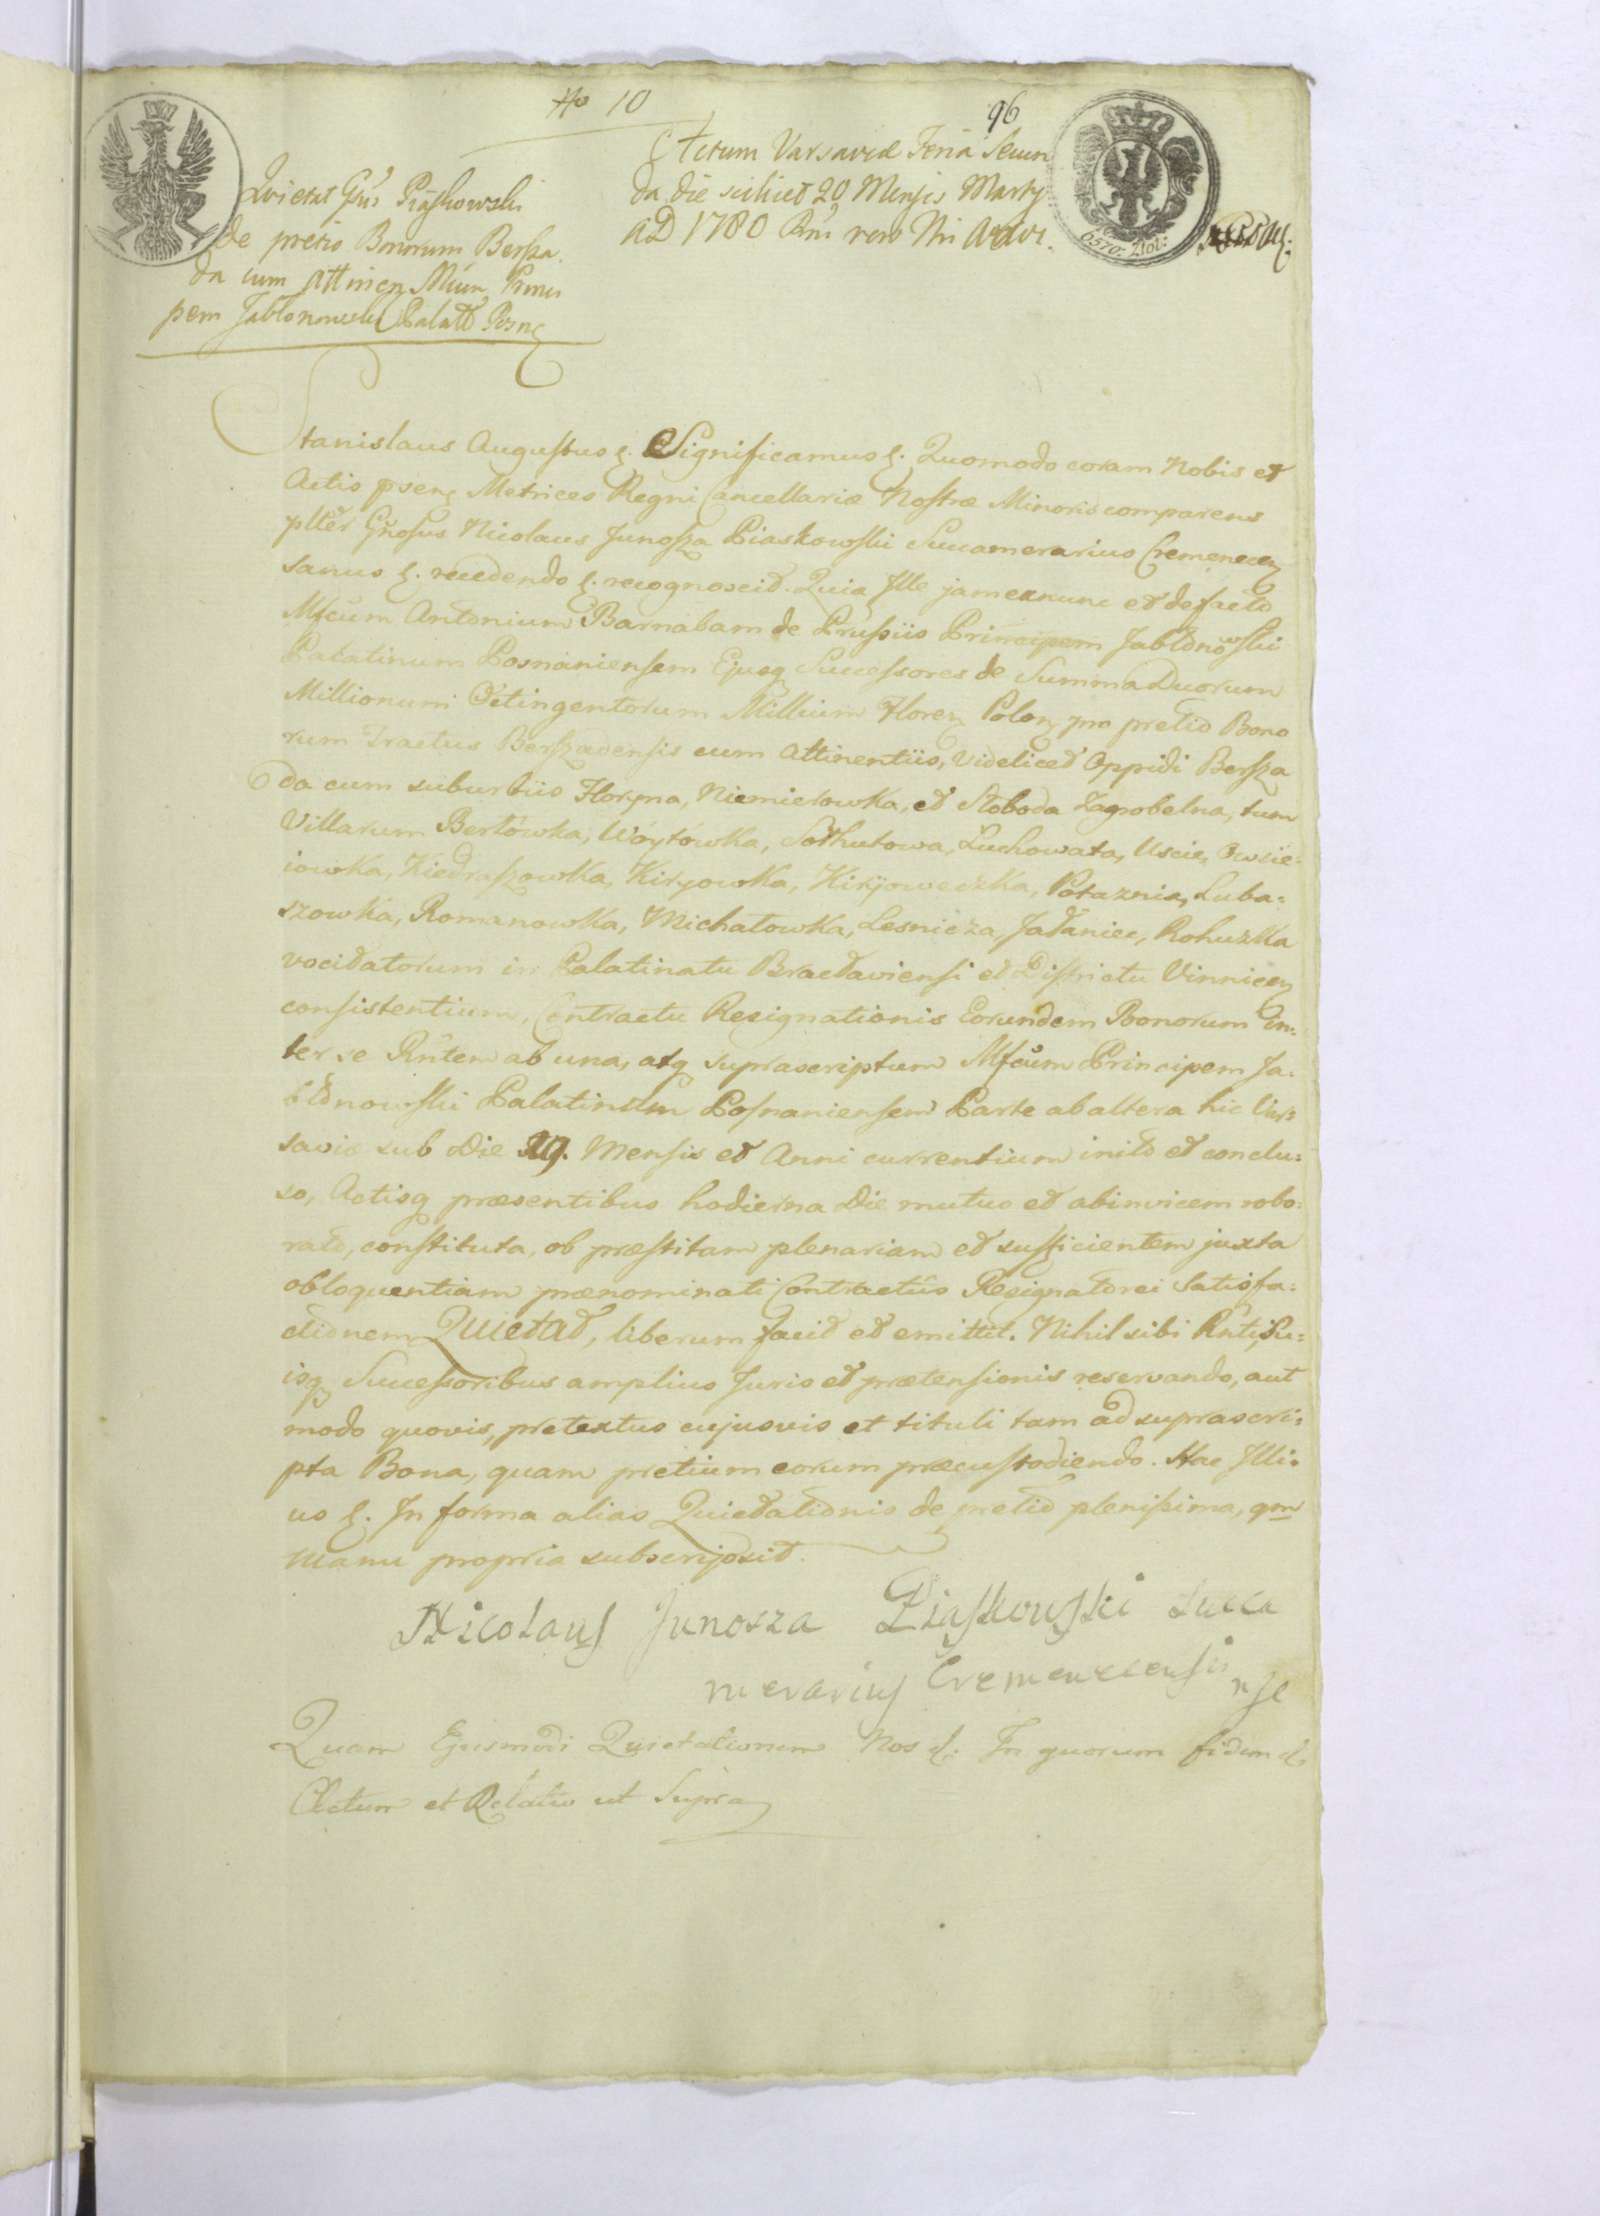 No 10
96
Actum Varsaviæ Feria Secun
da die scilicet 20 Mensis Marty
AD 1780
6570. Zlot:
Qvietat Gñs Piaskowski
de pretio Bonorum Bersza
da cum Attinen
pem Jabłonowski Palatt Posn
Stanislaus Augustus &. Significamus &. Quomodo coram Nobis et
Actis psen Metrices Regni Cancellariæ Nostræ Minoris comparens
plter Gnosus Nicolaus Junosza Piaskowski Succamerarius Cremenecen
sanus &. recedendo &. recognoscit. Quia Ille jam exnunc et defacto
Mfcum Antonium Barnabam de Prussiis Principem Jabłonowski
Palatinum Posnaniensem Ejusq Successores de Summa Duorum
Millionum Octingentorum Millium Floren Polon pro pretio Bono
rum Tractus Berszadensis cum Attinentiis, videlicet Oppidi Bersza
da cum suburbiis Floryna, Niemietowka, et Słoboda Zagrobelna, tum
Villarum Bertówka, Wóytówka, Sołhutowa, Luchowata, Uscie, Owsie:
iowka, Kiedraszowka, Kiryowka, Kiryoweczka, Potaznia, Luba:
szowka, Romanowka, Michałowka, Lesnicza, Jałaniec, Rohuzka
vocitatorum in Palatinatu Bracłaviensi et Districtu Vinnicen
consistentium, Contractu Resignationis Eorundem Bonorum in:
ter se Rñtem ab una, atq suprascriptum Mfcum Principem Ja:
błonowski Palatinum Posnaniensem Parte ab altera hic Var:
saviæ sub Die 19. Mensis et Anni currentium inito et conclu:
so, Actisq præsentibus hodierna Die mutuo et abinvicem robo:
rato, constituta, ob præstitam plenariam et sufficientem juxta
obloquentiam prænominati Contractûs Resignatorei Satisfa:
ctionem Quietat, liberum facit et emittit. Nihil sibi Rñti, Su:
isq Successoribus amplius Juris et prætensionis reservando, aut
modo quovis, pretextus cujusvis et tituli tam ad suprascri:
pta Bona, quam pretium eorum præcustodiendo. Hac Illi:
us &. In forma alias Quietationis de pretio plenissima, qm
Manu propria subscripsit.
Nicolaus Junosza Piaskowski Succa
merarius Cremenecensis
Quam Ejusmodi Quietationem Nos &. In quorum fidem &.
Actum et Datum ut Supra